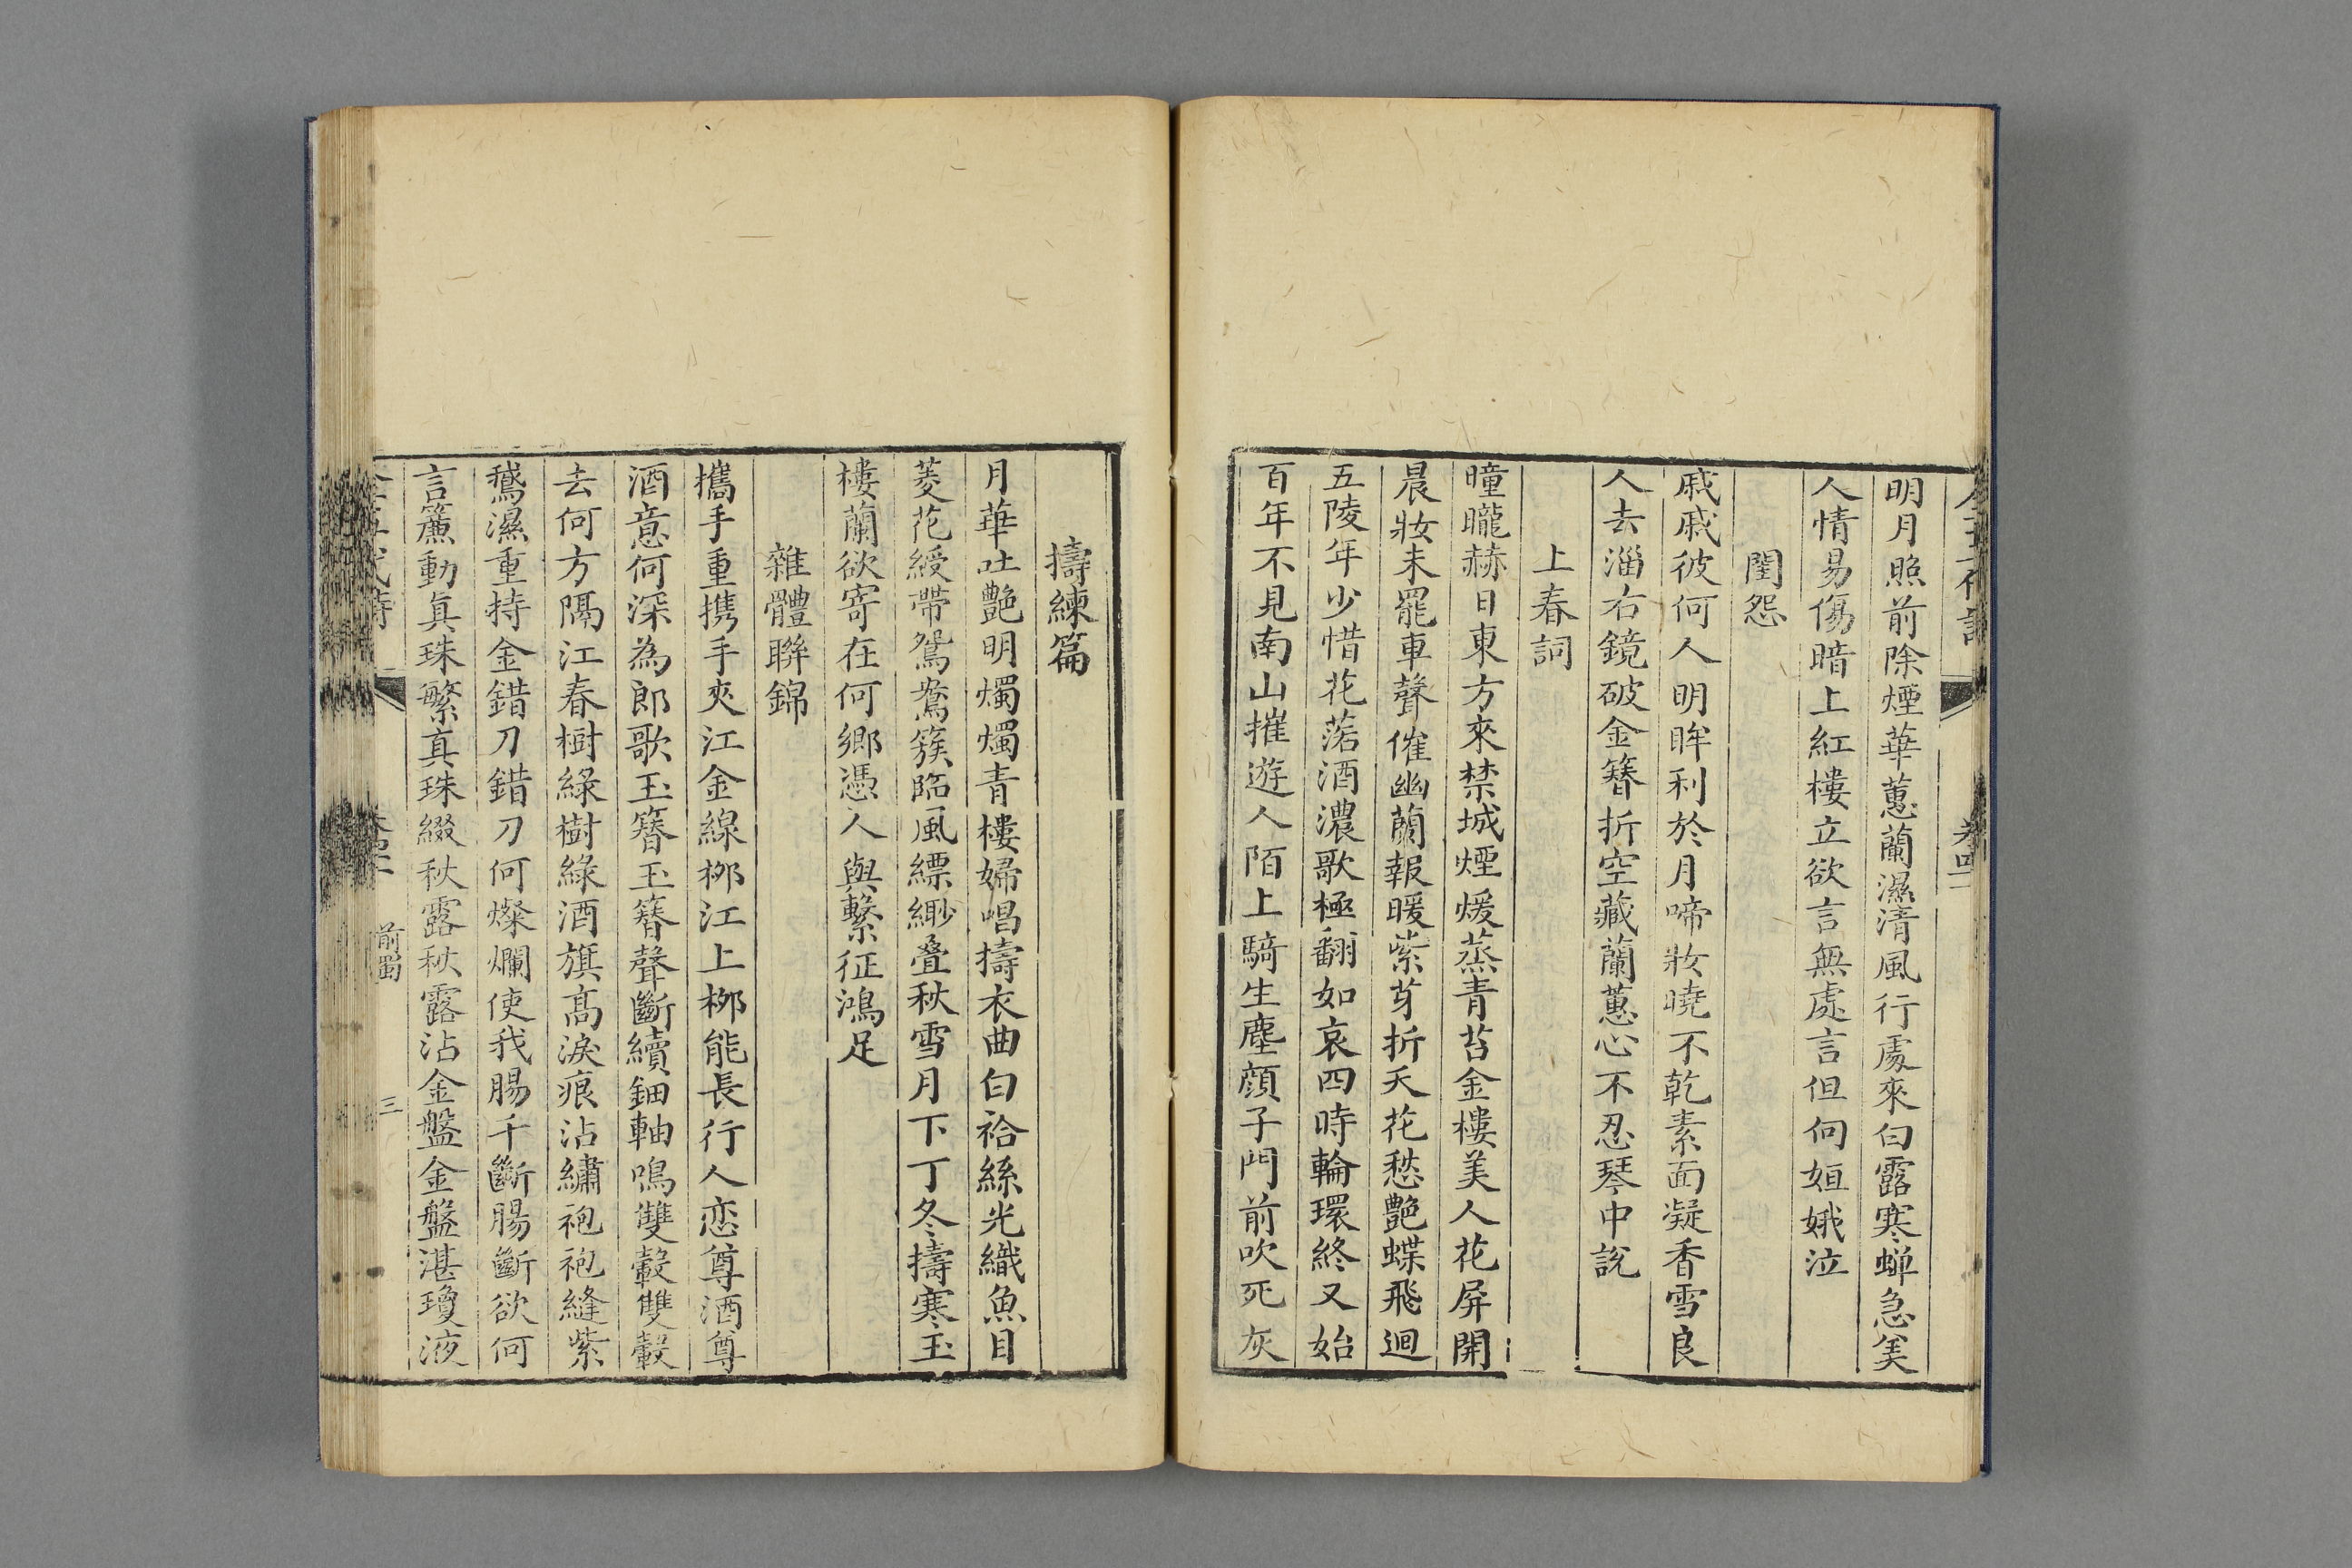 明月照前除煙華蕙蘭濕清風行處來白露寒蟬急美
人情易傷暗上紅樓立欲言無處言但向姮娥泣
閨怨
戚戚彼何人明眸利於月啼妝曉不乾素面凝香雪良
人去淄右鏡破金簪折空藏蘭蕙心不忍琴中說
上春詞
曈曨赫日東方來禁城煙煖蒸青苔金樓美人花屏開
晨妝未罷車聲催幽蘭報暖紫芽折夭花愁艷蝶飛迴
五陵年少惜花落酒濃歌極翻如哀四時輪環終又始
百年不見南山摧遊人陌上騎生塵顔子門前吹死灰
擣練篇
月華吐艷明燭燭青樓婦唱擣衣曲白袷絲光織魚目
菱花綬帶鴛鴦簇臨風縹緲疊秋雪月下丁冬擣寒玉
樓蘭欲寄在何鄉憑人與繫征鴻足
雜體聯錦
攜手重携手夾江金線栁江上栁能長行人恋尊酒尊
酒意何深為郎歌玉簪玉簪聲斷續鈿軸鳴雙轂雙轂
去何方隔江春樹綠樹綠酒旗髙淚痕沾繡袍袍縫紫
鵞濕重持金錯刀錯刀何燦爛使我腸千斷腸斷欲何
言簾動真珠繁真珠綴秋露秋露沾金盤金盤湛瓊液
前蜀
三